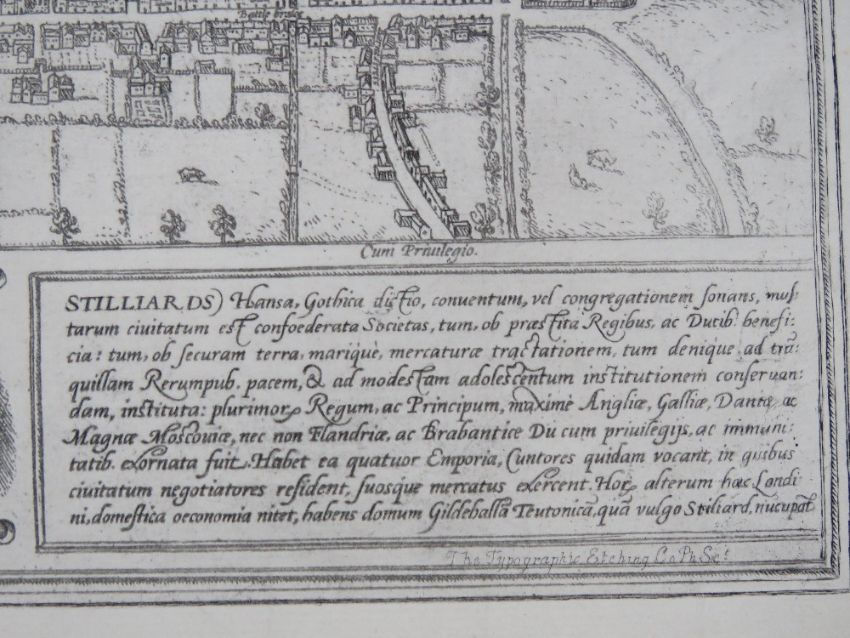 Battle bridge
Cum Priuilegio.
STILLIARDS) Hansa, Gothica dictio, conuentum, vel congregationem sonans, mul:
tarum ciuitatum est confoederata Societas, tum, ob præstita Regibus, ac Ducib. benefi:
cia: tum, ob securam terra, marique, mercaturæ tractationem, tum denique, ad tra:
quillam Rerumpub. pacem, & ad modestam adolescentum institutionem conseruan:
dam, instituta: plurimor. Regum, ac Principum, maximè Angliæ, Galliæ, Daniæ, ac
Magnæ Moscouiæ, nec non Flandriæ, ac Brabantice Du cum priuilegijs, ac immuni:
tatib. exornata fuit. Habet ea quatuor Emporia, Cuntores quidam vocant, in quibus
ciuitatum negotiatores resident, suosque mercatus exercent. Hor. alterum hac Londi
ni, domestica oeconomia nitet, habens domum Gildehallã Teutonicã, quã vulgo Stiliard, nucupat.
The Typographic Etching Co Ph. Sc.t